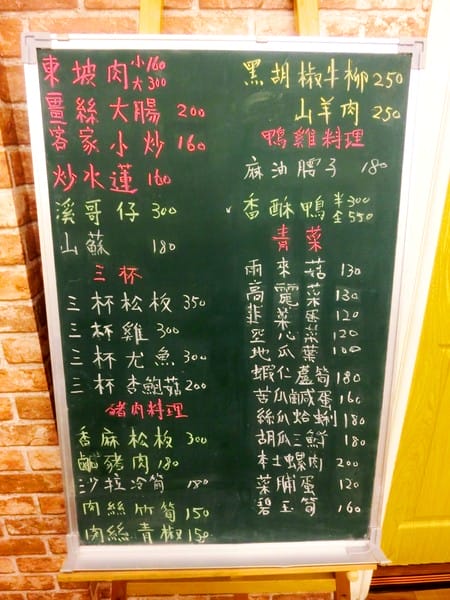 東坡肉 小160 大300
薑絲大腸 200
客家小炒 160
炒水蓮 160
溪哥仔 300
山蘇 180
三杯
三杯松板 350
三杯雞 300
三杯尤魚 300
三杯杏鮑菇 200
豬肉料理
香麻松板 300
鹹豬肉 180
沙拉冷筍 180
肉絲竹筍 150
肉絲青椒 150
黑胡椒牛柳 250
山羊肉 250
鴨雞料理
麻油腰子 180
香酥鴨 半300 全550
青菜
雨來菇 130
高麗菜 130
韮菜蛋 120
空心菜 120
地瓜葉 100
蝦仁蘆筍 180
苦瓜鹹蛋 160
絲瓜蛤蜊 180
胡瓜三鮮 180
本土螺肉 200
菜脯蛋 120
碧玉筍 160